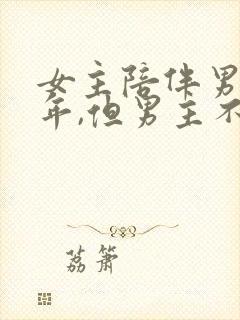 女主陪伴男
年,但男主不
荔箫